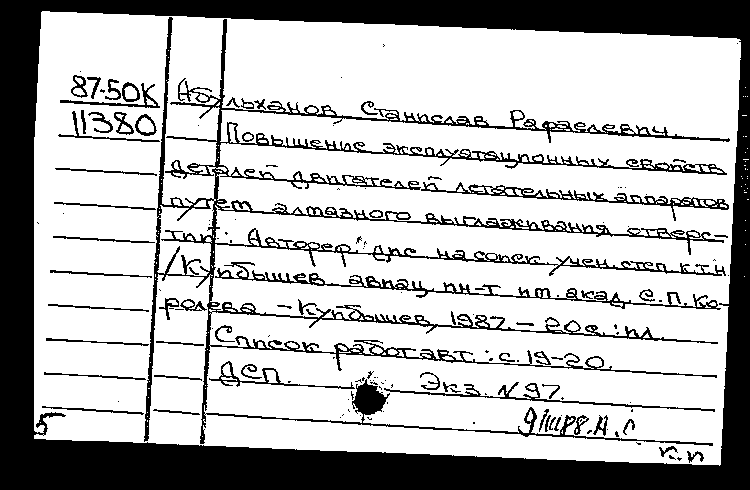 87-50К Абульханов, Станислав Рафаелевич.
11380 Повышение эксплуатационных свойств
деталей двигателей летательных аппаратов
путем алмазного выглаживания отверс-
тий: Автореф. дис на соиск. учен. степ к.т.н
/Куйбышев. авиац. ин-т им. акад. С.П. Ко-
ролева. - Куйбышев, 1987. - 20с. : ил.
Список работ авт. : с. 19-20.
ДСП. Экз. N 97.
5
к.п